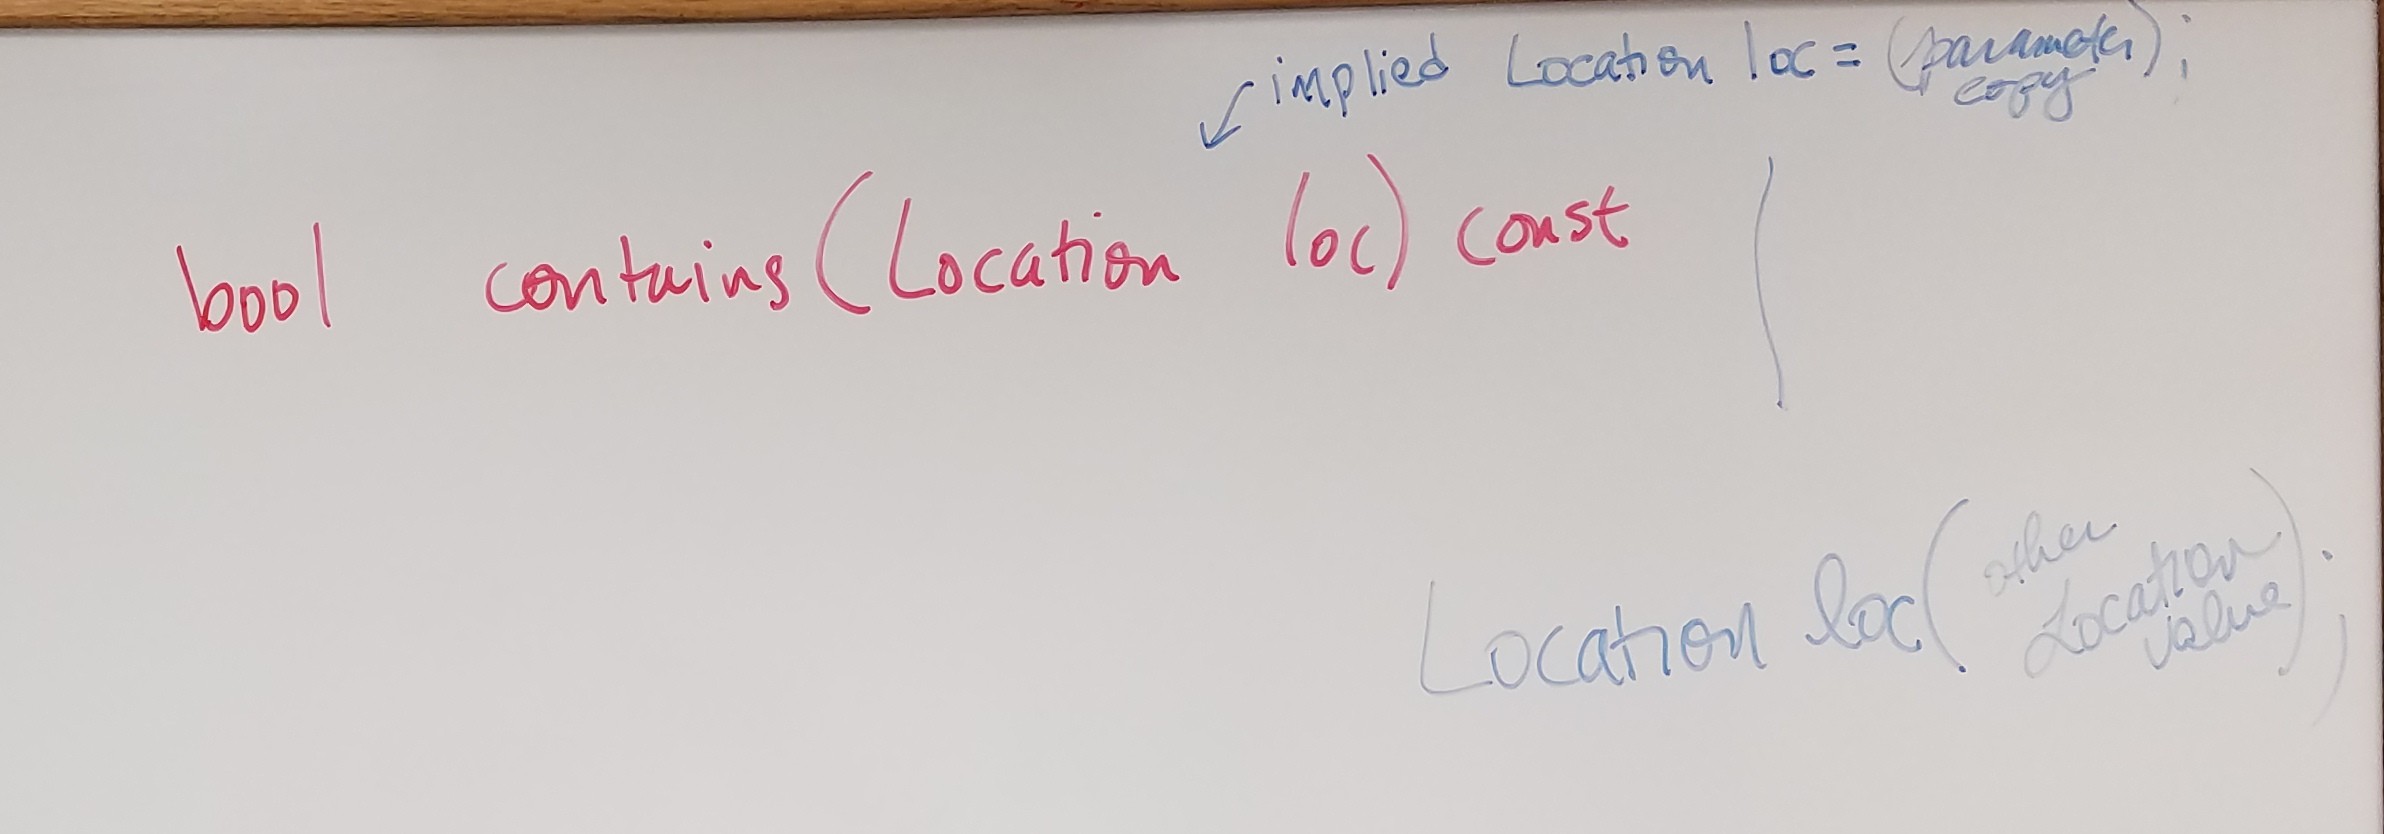 implied Location loc = (parameter copy);
bool contains(Location loc) const
Location loc(other Location value);